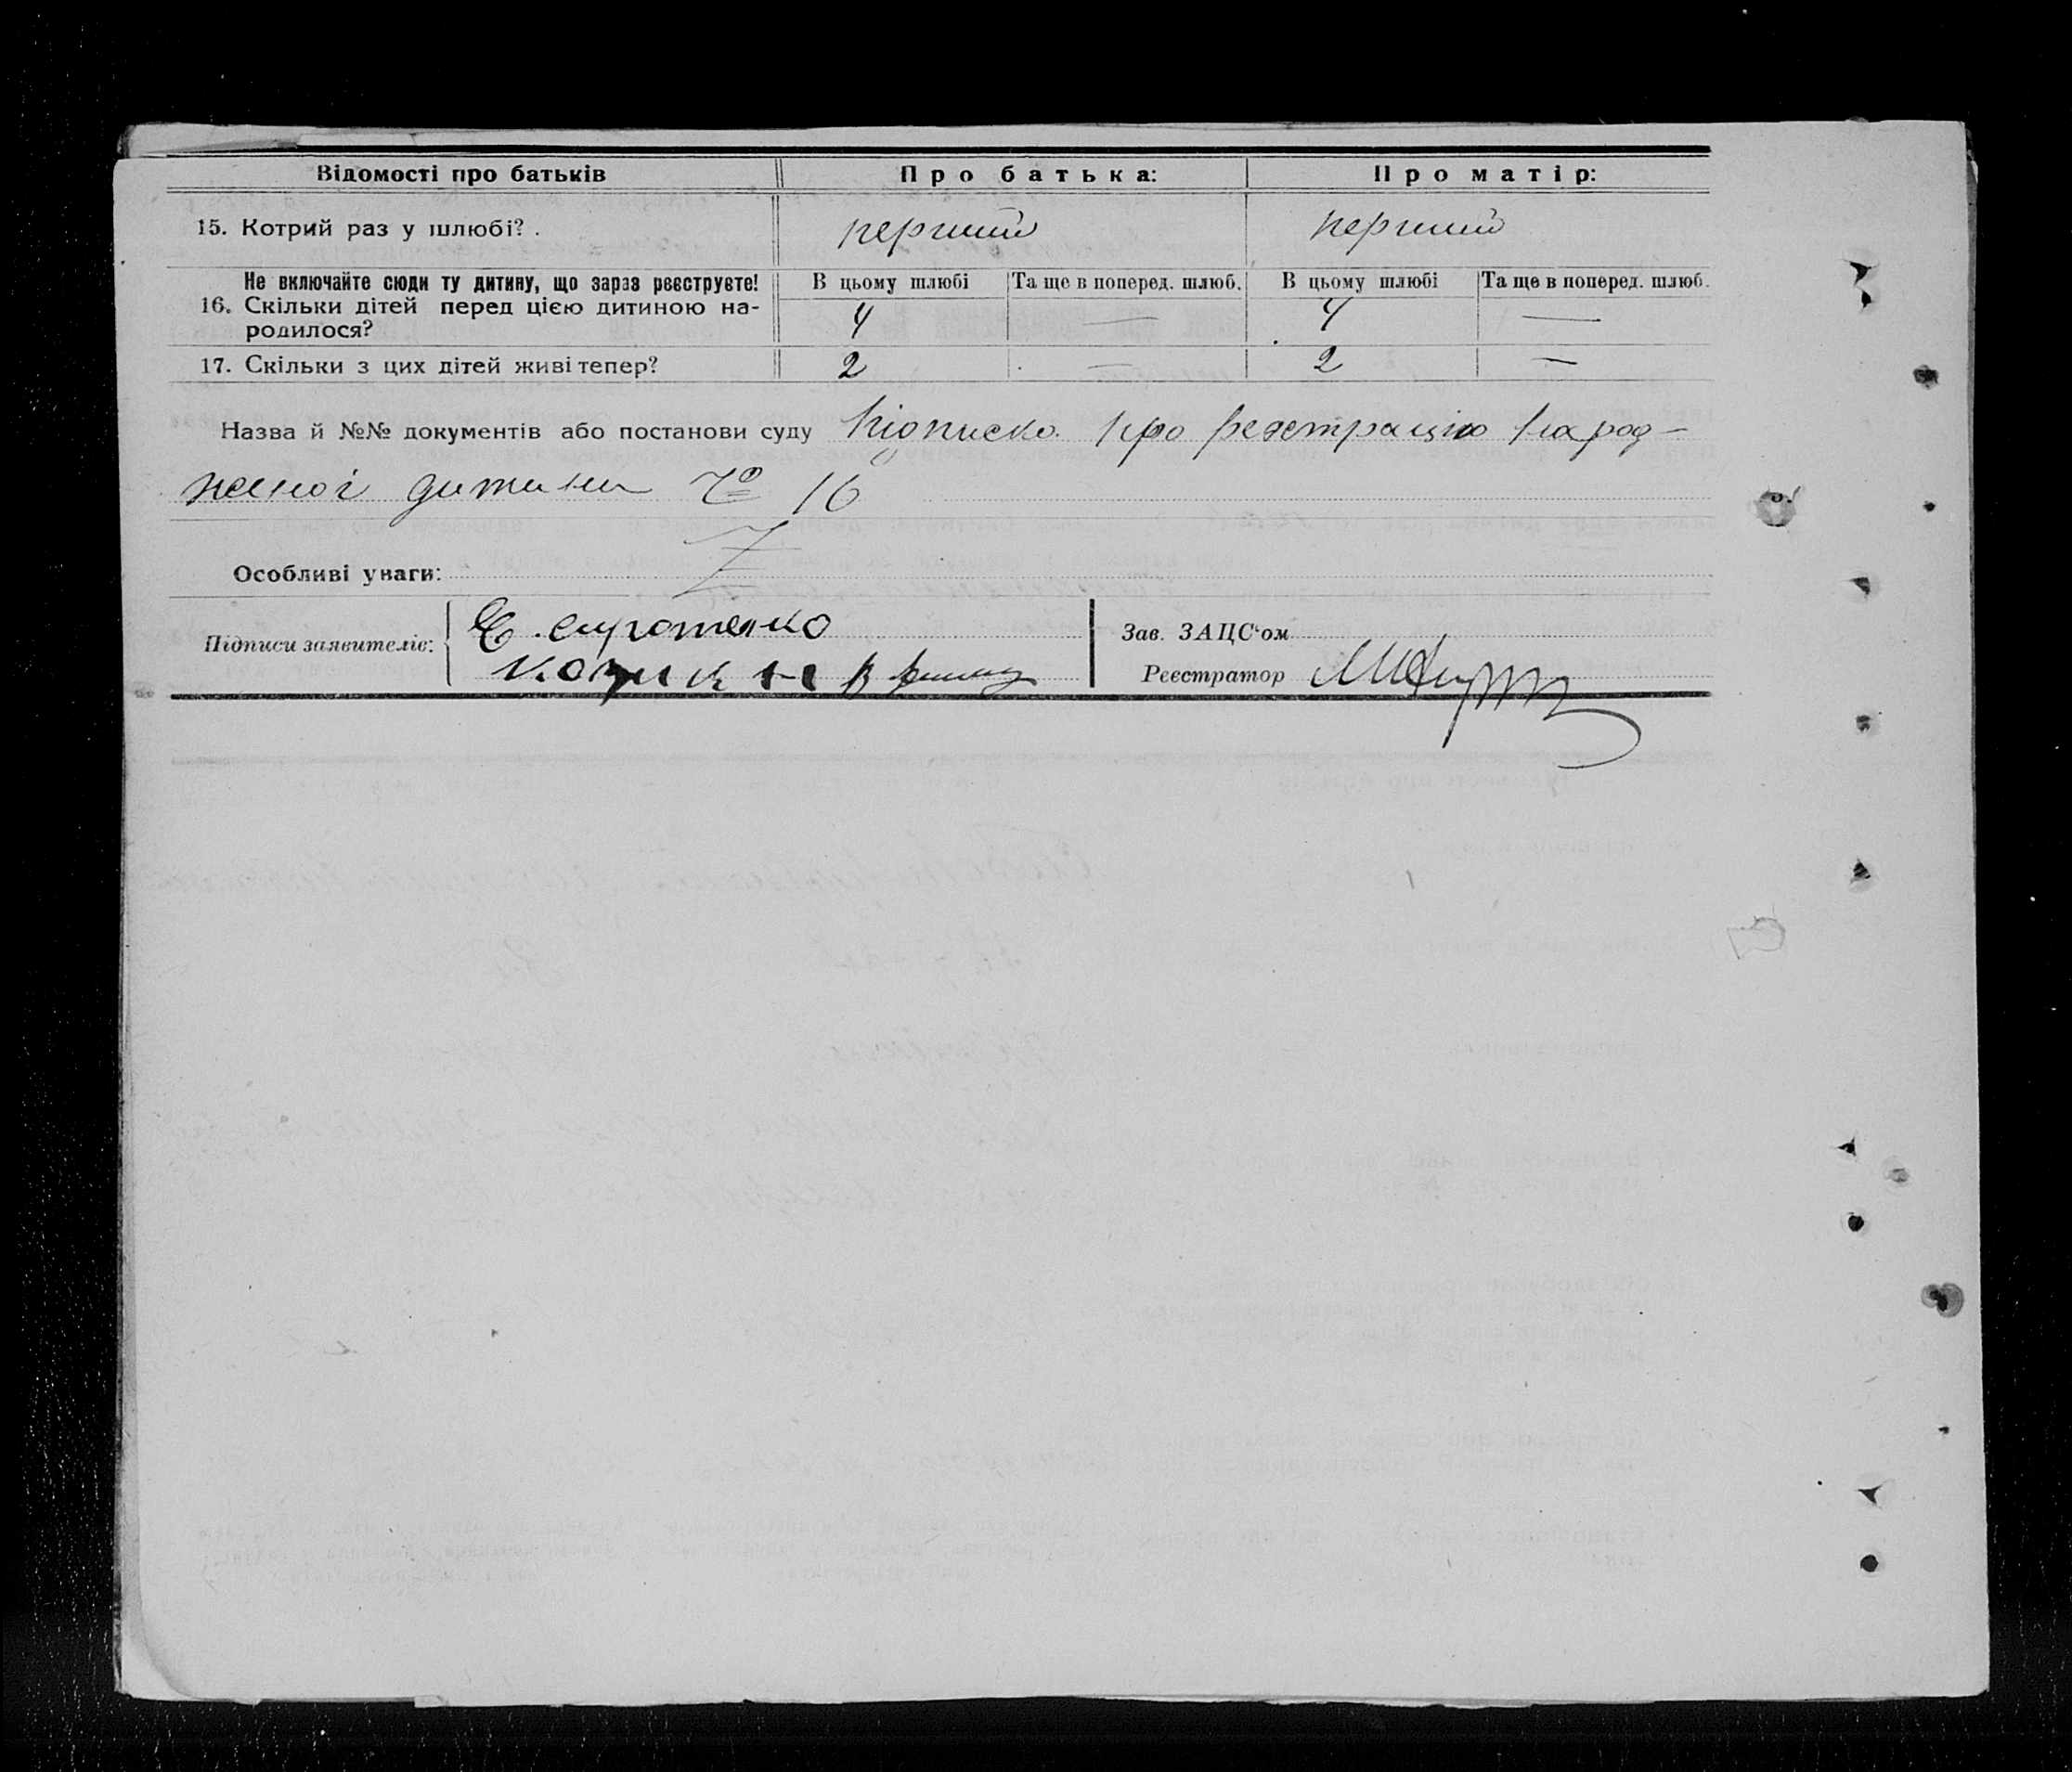 Відомості про батьків Про батька: Про матір:
15. Котрий раз у шлюбі? . перший перший
Не включайте сюди ту дитину, що зараз реєструєте! В цьому шлюбі Та ще в поперед. шлюб. В цьому шлюбі Та ще в поперед. шлюб.
16. Скільки дітей перед цією дитиною на-
родилося? 4 — 4 —
17. Скільки з цих дітей живі тепер? 2 — 2 —
Назва й №№ документів або постанови суду про реєстрацію народ-
женої дитини № 16
Особливі уваги:
Підписи заявителів: Є. Сиротенко
Зав. ЗАЦС'ом
Реєстратор